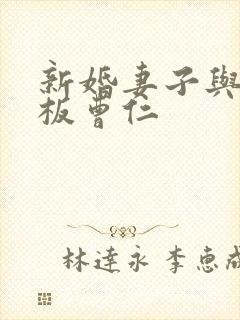 新婚妻子與
板曹仁
林達永 李惠